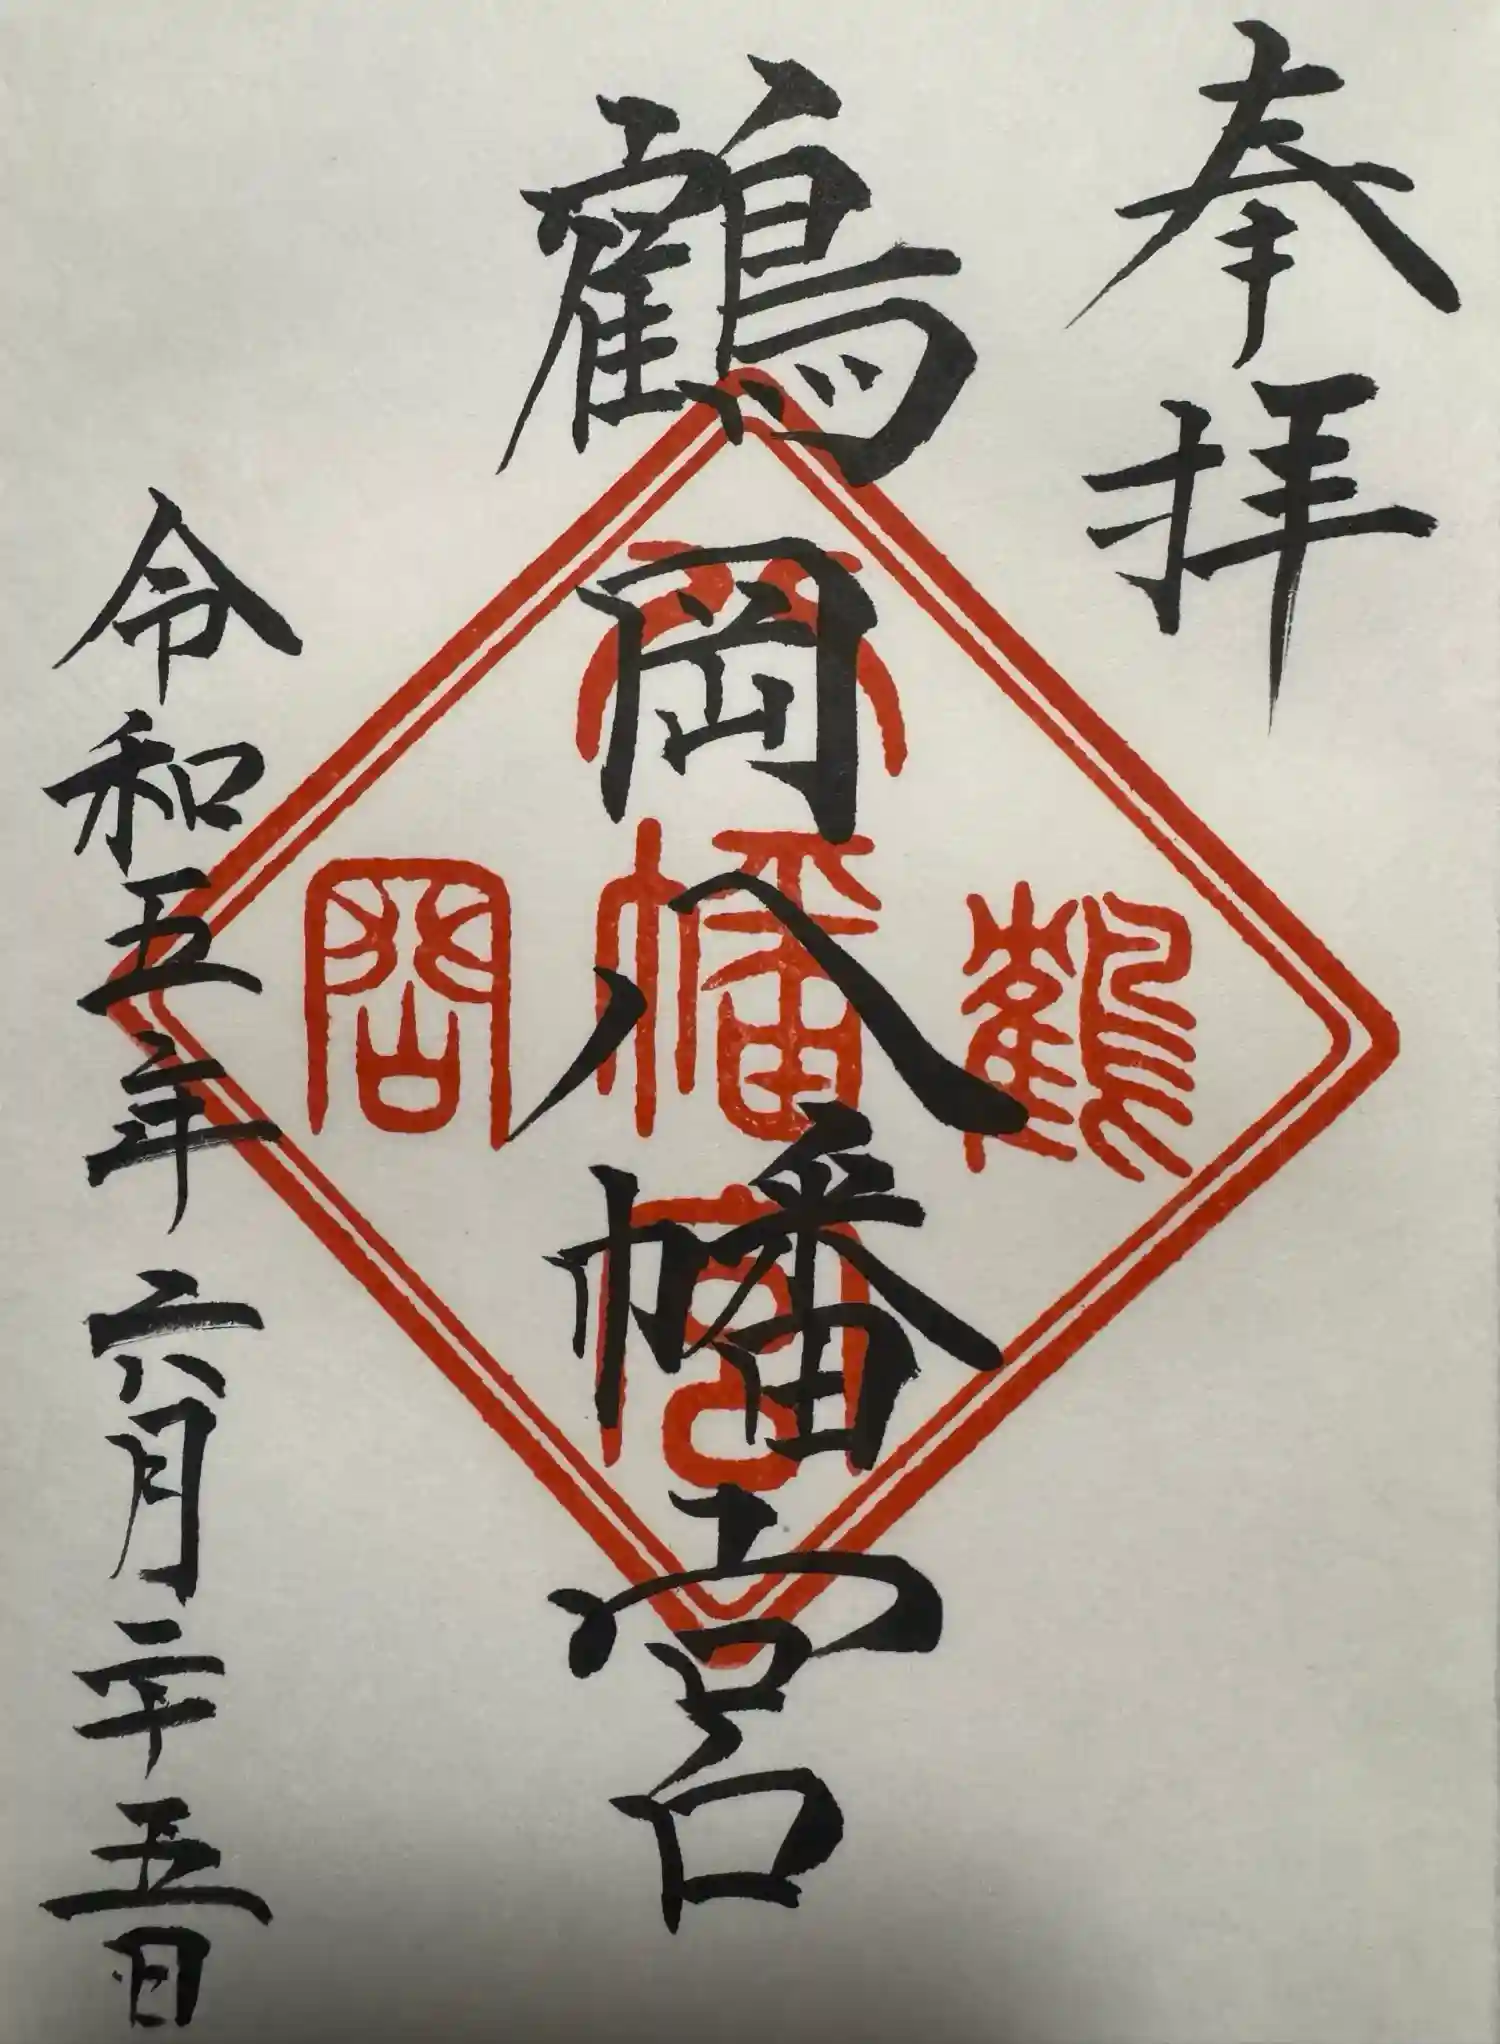 奉拝
鶴岡八幡宮
鶴岡八幡宮
令和五年六月二十五日